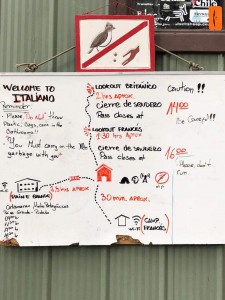 WELCOME TO
ITALIANO
Reminder:
- Please, Do Not throw
Plastic, Bags, corn in the
Bathrooms!!
- "You Must carry in the
garbage with you"
LOOKOUT BRITÁNICO
2 hrs APROX.
cierre de sendero
Pass closes at
14:00
Caution!!
Be Careful!!
LOOKOUT FRANCES
1:30 hrs APROX.
cierre de sendero
Pass closes at
16:00
Please, don't
run
wi-fi
PAINE GRANDE
2,5 hrs APROX.
30 min. APROX.
wi-fi
CAMP.
FRANCÉS